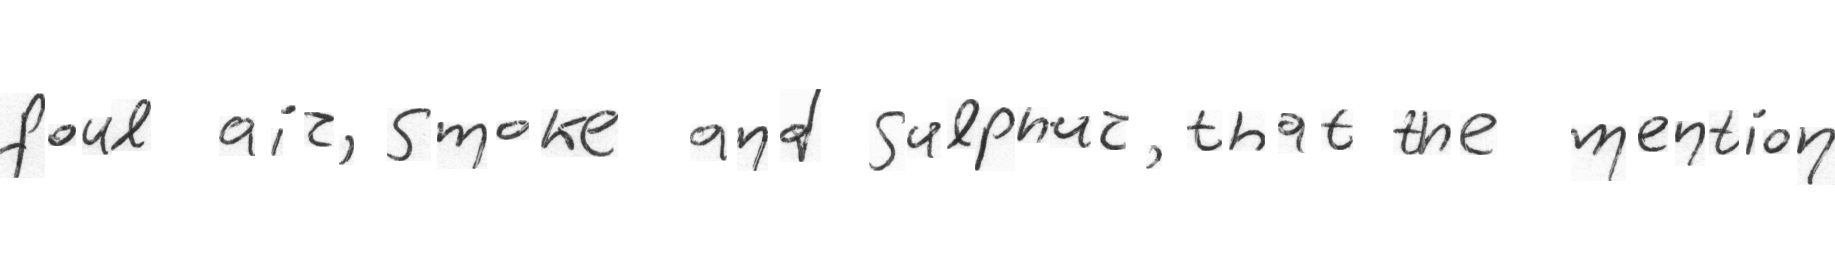 foul air, smoke and sulphur, that the mention